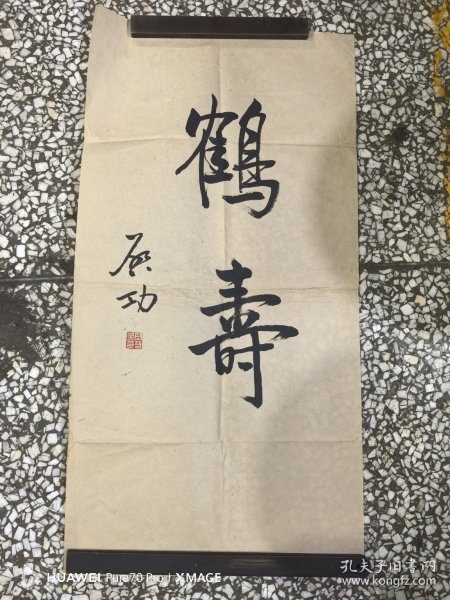 鶴壽
启功
HUAWEI Pura70 Pro | XMAGE
孔夫子旧书网
www.kongfz.com